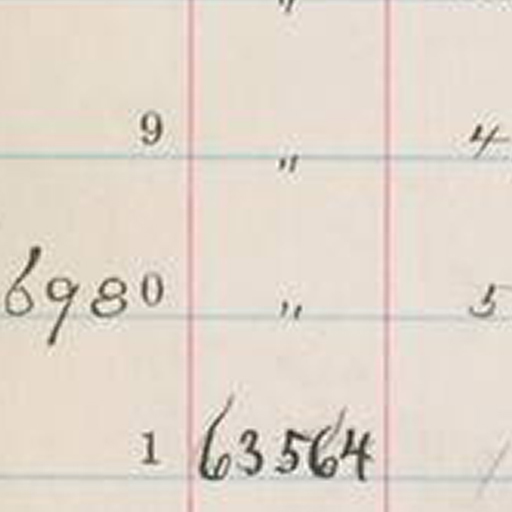 9 " 4
6980 " 5
1 63564